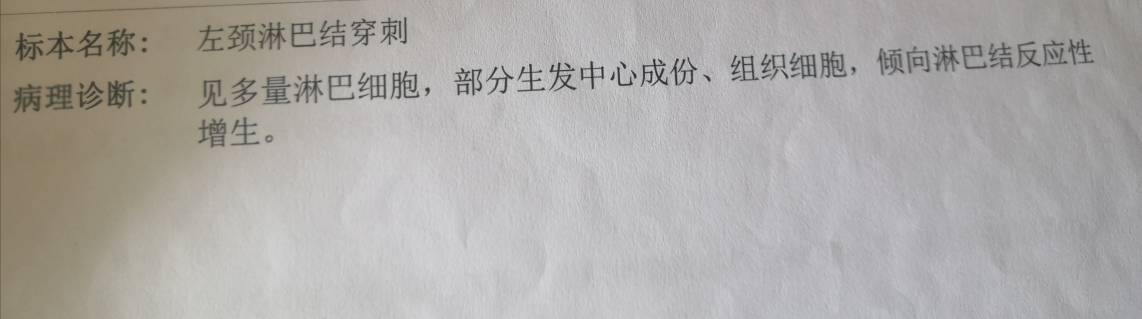 标本名称： 左颈淋巴结穿刺
病理诊断： 见多量淋巴细胞，部分生发中心成份、组织细胞，倾向淋巴结反应性
增生。